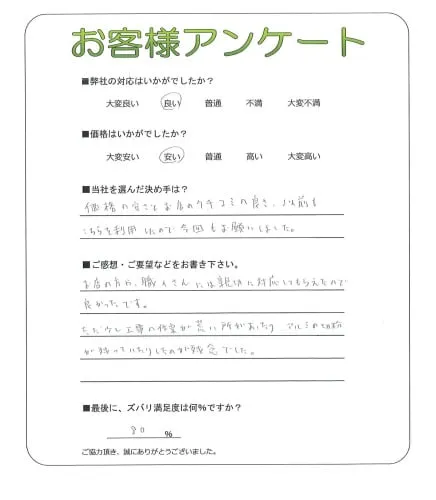 お客様アンケート
■弊社の対応はいかがでしたか？
大変良い 良い 普通 不満 大変不満
■価格はいかがでしたか？
大変安い 安い 普通 高い 大変高い
■当社を選んだ決め手は？
価格の安さとお店のクチコミの良さ、以前も
こちらを利用したので今回もお願いしました。
■ご感想・ご要望などをお書き下さい。
お店の方や、職人さんには親切に対応してもらえたので
良かったです。
ただ少し工事の作業が荒い所があったり アルミの切粉
が残っていたりしたのが残念でした。
■最後に、ズバリ満足度は何%ですか？
80 %
ご協力頂き、誠にありがとうございました。